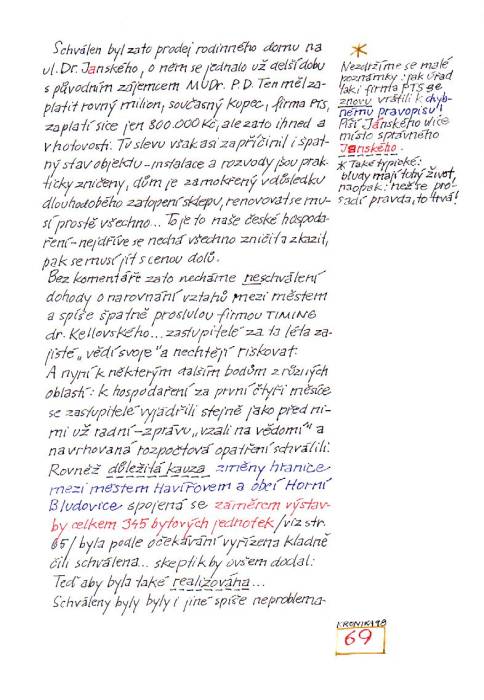 Schválen byl zato prodej rodinného domu na
ul. Dr. Janského, o něm se jednalo už delší dobu
s původním zájemcem MUDr. P.D. Ten měl za-
platit rovný milion, současný kupec, firma PTS,
zaplatí sice jen 800.000 Kč, ale zato ihned a
v hotovosti. Tu slevu však asi zapříčinil i špat-
ný stav objektu – instalace a rozvody jsou prak-
ticky zničeny, dům je zamokřený v důsledku
dlouhodobého zatopení sklepu, renovovat se mu-
sí prostě všechno... To je to naše české hospoda-
ření – nejdříve se nechá všechno zničit a zkazit,
pak se musí jít s cenou dolů.
Bez komentáře zato necháme neschválení
dohody o narovnání vztahů mezi městem
a spíše špatně proslulou firmou TIMING
dr. Kellovského... zastupitelé za ta léta za-
jisté „vědí svoje" a nechtějí riskovat.
A nyní k některým dalším bodům z různých
oblastí: k hospodaření za první čtyři měsíce
se zastupitelé vyjádřili stejně jako před ni-
mi už radní – zprávu „vzali na vědomí" a
navrhovaná rozpočtová opatření schválili.
Rovněž důležitá kauza změny hranice
mezi městem Havířovem a obcí Horní
Bludovice spojená se záměrem výstav-
by celkem 345 bytových jednotek /viz str.
65/ byla podle očekávání vyřízena kladně
čili schválena... skeptik by ovšem dodal:
Teď aby byla také realizována...
Schváleny byly byly i jiné spíše neproblema-
*
Nezdržíme se malé
poznámky: jak úřad
tak i firma PTS se
znovu vrátili k chyb-
nému pravopisu!
Píší Jánského ulice
místo správného
Janského.
* Také typické:
bludy mají tuhý život,
naopak: než se pro-
sadí pravda, to trvá!
KRONIKA 98
69